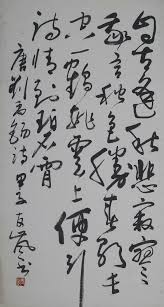 自古逢秋悲寂寥
我言秋日勝春朝晴
空一鶴排雲上便引
詩情到碧霄
唐劉禹錫詩 甲子